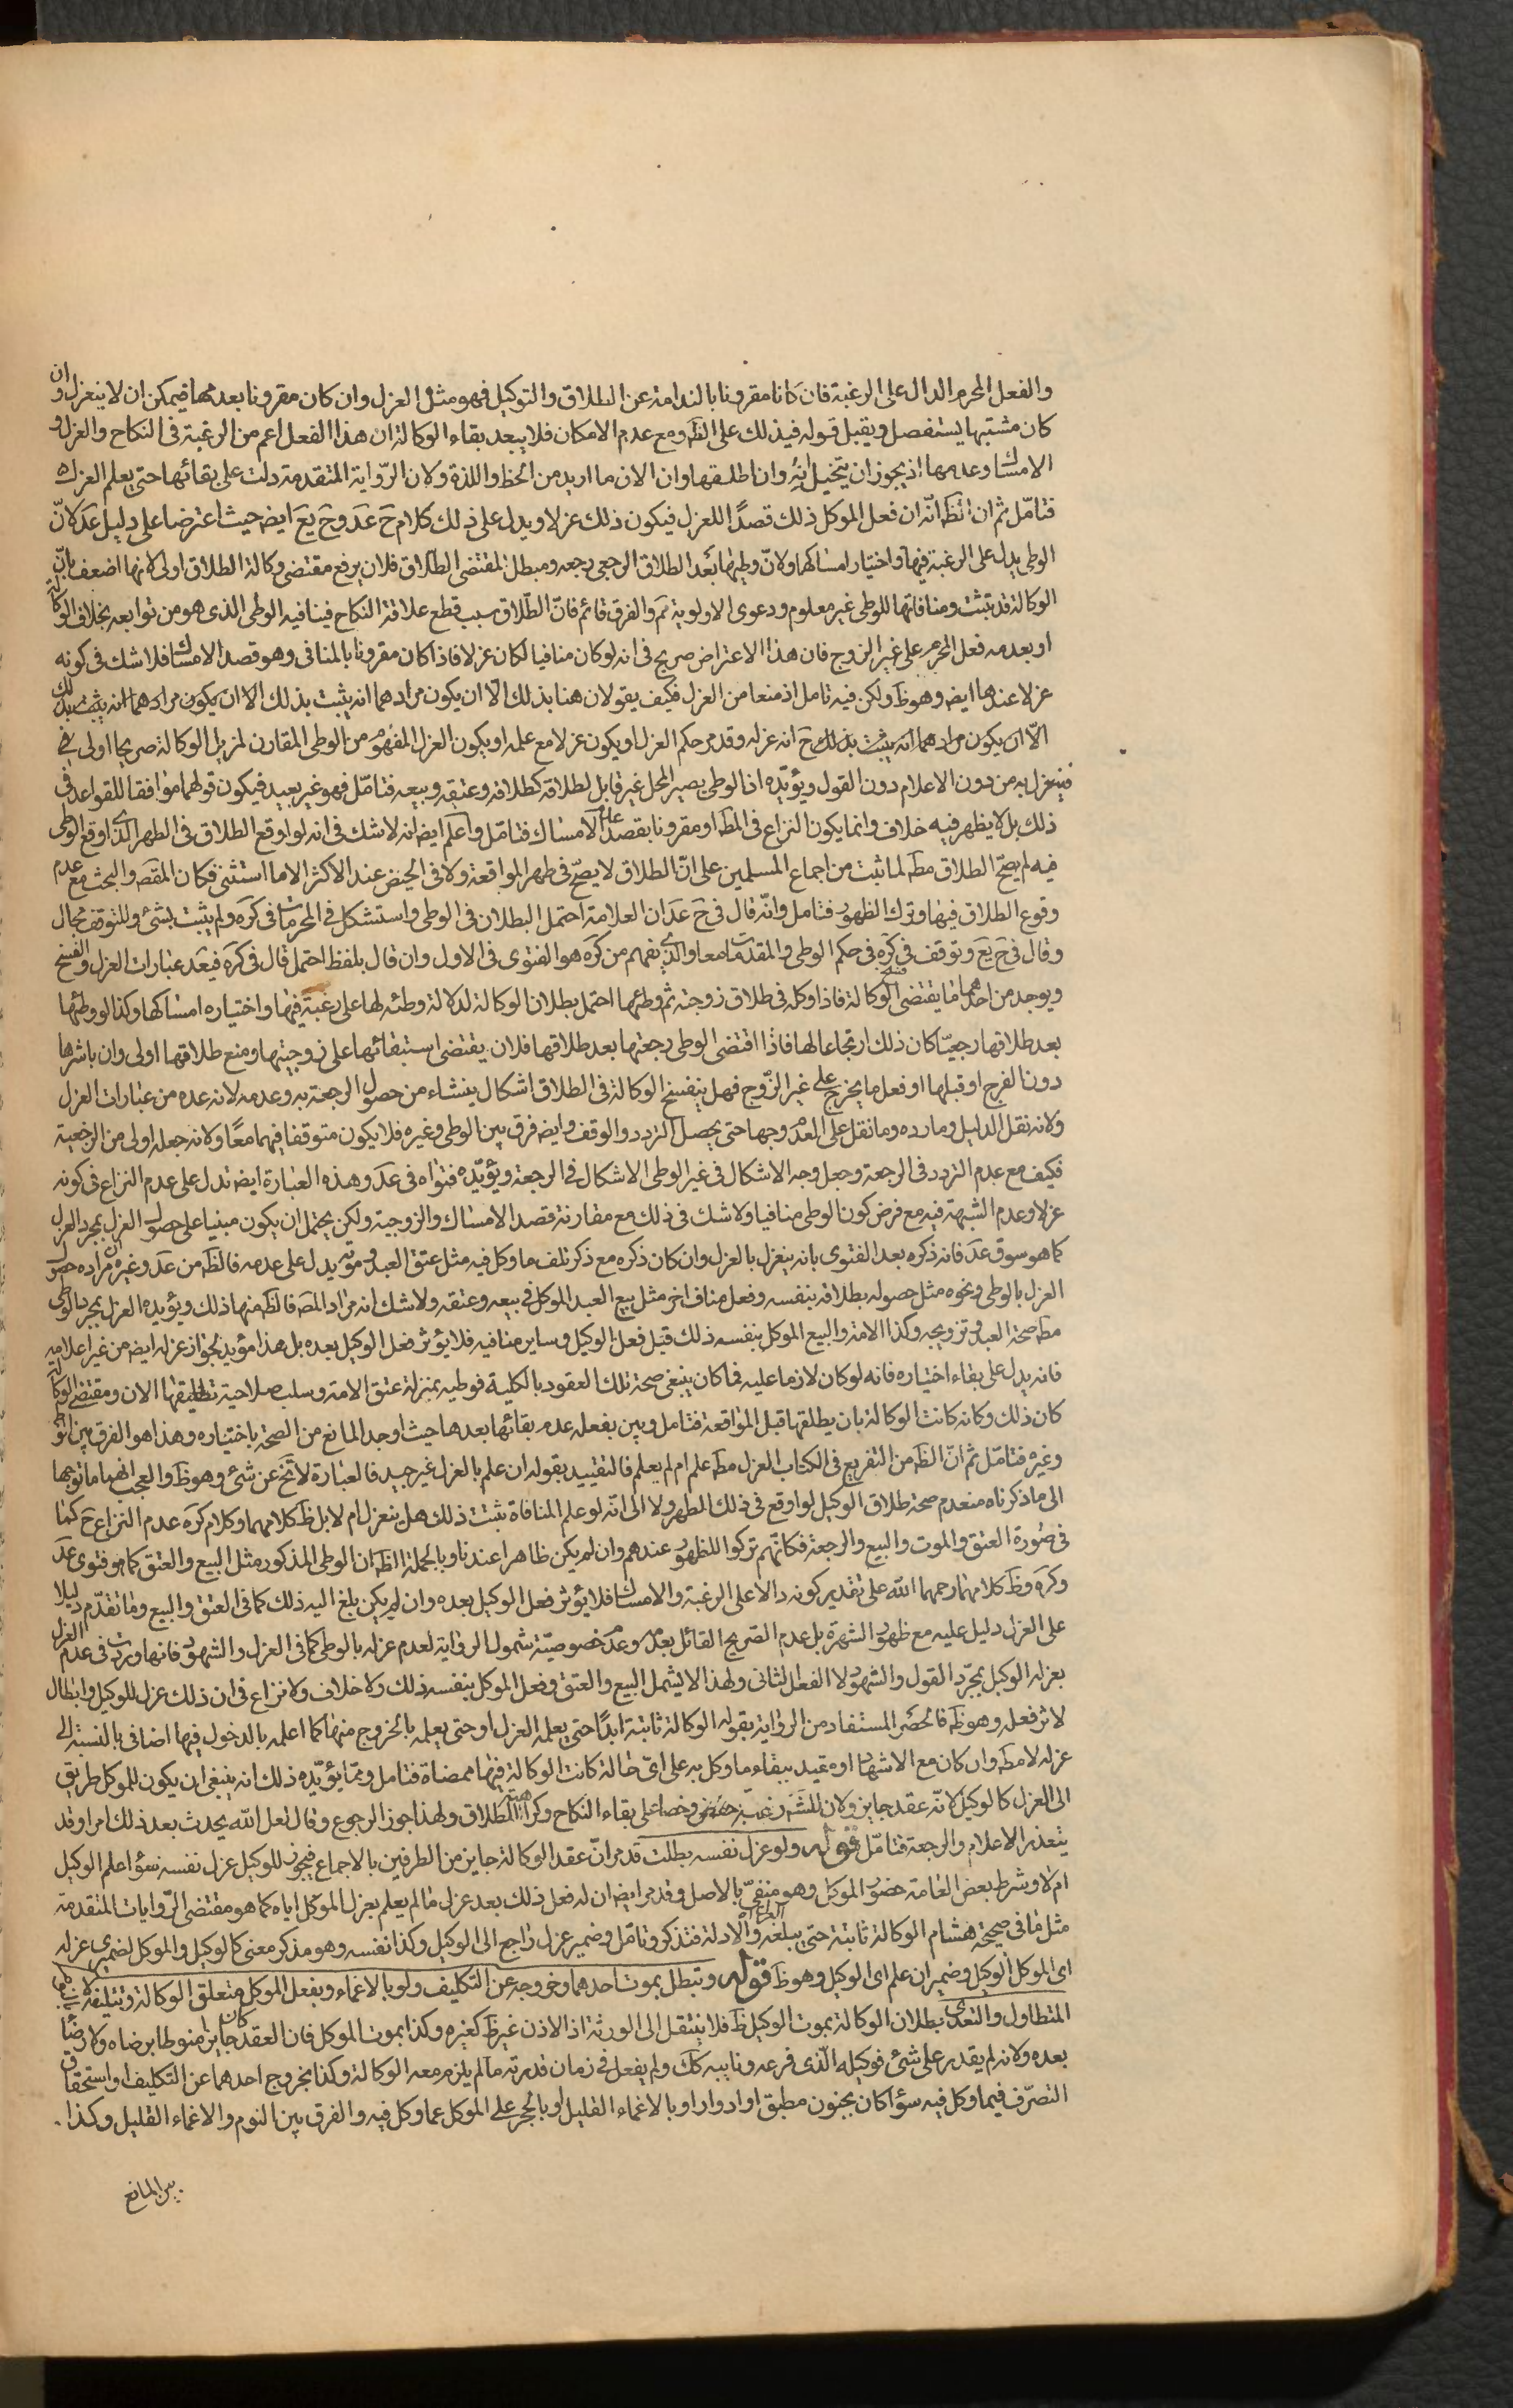 والفعل المحرم الدال على الرغبة فان كانا مقرونا بالندامة عن الطلاق والتوكيل فهو مثل العزل وان كان مقرونا بعدمها فيمكن ان لا ينعزل وان
كان مشتبها يستفصل ويقبل قوله فيذلك على الظ ومع عدم الامكان فلا يبعد بقاء الوكالة ان هذا الفعل اعم من الرغبة فى النكاح والعزل و
الامساك وعدمها اذ يجوز ان يتخيل انه وان اطلقها وان الان ما اريد من الحظ واللذة ولان الرواية المتقدمة دلت على بقائها حتى يعلم العزل
فتامّل ثم ان الظ انّه ان فعل الموكل ذلك قصدًا للعزل فيكون ذلك عزلا ويدل على ذلك كلام ح عد وح يع ايض حيث اعترضا على دليل عد كانّ
الوطى يدل على الرغبة فيها واختيار امساكها ولانّ وطيها بعد الطلاق الرجعى رجعه ومبطل لمقتضى الطلاق فلان يرفع مقتضى وكالة الطلاق اولى لانها اضعف بانّ
الوكالة قد تثبت ومنافاتها للوطى غير معلوم ودعوى الاولوية ثم والفرق قائم فانّ الطّلاق سبب قطع علاقة النكاح فينافيه الوطى الذى هو من توابعه بخلاف الوكالة
او بعدمه فعل المحرم على غير الزوج فان هذا الاعتراض صريح فى انه لو كان منافيا لكان عزلا فاذا كان مقرونا بالمنافى وهو قصد الامساك فلا شك فى كونه
عزلا عندهما ايض وهو ظ ولكن فيه تامل اذ منعا من العزل فكيف يقولان هنا بذلك الّا ان يكون مرادهما انه يثبت بذلك الا ان يكون مرادهما انه يثبت بذلك
الّا ان يكون مرادهما انه يثبت بذلك ح انه عزله وقد مر حكم العزل او يكون عزلا مع علمه او يكون العزل المفهوم من الوطى المقارن لمزيل الوكالة صريحا اولى فى
فينعزل به من دون الاعلام دون القول ويؤيّده اذ الوطى يصير المحل غير قابل لطلاقه كطلاقه وعتقه وبيعه فتامّل فهو غير بعيد فيكون قولهما موافقا للقواعد فى
ذلك بل لا يظهر فيه خلاف وانما يكون النزاع فى المط او مقرونا بقصد عدم الامساك فتامّل واعلم ايض انه لا شك فى انه لو اوقع الطلاق فى الطهر الذى اوقع الوطى
فيه لم يصحّ الطلاق مط لما ثبت من اجماع المسلمين على انّ الطلاق لا يصحّ فى طهر المواقعة ولا فى الحيض عند الاكثر الا ما استثنى فكان المقص والبحث مع عدم
وقوع الطلاق فيها وترك الظهور فتامل وانّه قال فى ح عد ان العلامة احتمل البطلان فى الوطى واستشكل فى المحرمات فى كره ولم يثبت بشئ وللتوقف مجال
وقال فى ح يع وتوقف فى كره فى حكم الوطى والمقدمات معا والذى نفهم من كره هو الفتوى فى الاول وان قال بلفظ احتمل قال فى كره فيعد عبارات العزل والفسخ
ويوجد من احدهما ما يقتضى الوكالة فاذا وكله فى طلاق زوجته ثم وطئها احتمل بطلان الوكالة لدلالة وطئه لها على رغبة فيها واختياره امساكها وكذا لو وطئها
بعد طلاقها رجعيّا كان ذلك ارتجاعا لها فاذا اقتضى الوطى رجعتها بعد طلاقها فلان يقتضى استبقائها على زوجيتها ومنع طلاقها اولى وان باشرها
دون الفرج او قبلها او فعل ما يخرج على غير الزّوج فهل ينفسخ الوكالة فى الطلاق اشكال ينشاء من حصول الرجعة به وعدمه لانه عده من عبارات العزل
ولانه نقل الدليل وما رده وما نقل على العدم وجها حتى يحصل التردد والوقف وايض فرق بين الوطى وغيره فلا يكون متوقفا فيهما معًا ولانه جعله اولى من الرجعية
فكيف مع عدم التردد فى الرجعة وجعل وجه الاشكال فى غير الوطى الاشكال فى الرجعة ويؤيّده فتواه فى عد وهذه العبارة ايض تدل على عدم النزاع فى كونه
عزلا وعدم الشبهة فيه مع فرض كون الوطى منافيا ولا شك فى ذلك مع مقارنة قصد الامساك والزوجية ولكن يحتمل ان يكون مبنيا على حصول العزل بمجرد العزل
كما هو سوق عد فانه ذكره بعد الفتوى بانه ينعزل بالعزل وان كان ذكره مع ذكر تلف ما وكل فيه مثل عتق العبد وموته يدل على عدمه فالظ من عد وغيره ان مراده حصول
العزل بالوطى ونحوه مثل حصوله بطلاقه بنفسه وفعل مناف اخر مثل بيع العبد الموكل فى بيعه وعتقه ولا شك انه مراد المص فالظ منها ذلك ويؤيده العزل بمجرد الوطى
مط صحة العبد وتزويجه وكذا الامة والبيع الموكل بنفسه ذلك قبل فعل الوكيل وساير منافيه فلا يؤثر فعل الوكيل بعده بل هذا مؤيد لجواز عزله ايض من غير اعلامه
فانه يدل على بقاء اختياره فانه لو كان لازما عليه فما كان ينبغى صحة تلك العقود بالكلية فوطيه بمنزلة عتق الامة وسلب صلاحية تطليقها الان ومقتضى الوكالة
كان ذلك وكانه كانت الوكالة بان يطلقها قبل المواقعة فتامل وبين بفعله عدم بقائها بعدها حيث اوجد المانع من الصحة باختياره وهذا هو الفرق بين الوطى
وغيره فتامّل ثم انّ الظ من التفريع فى الكتاب العزل مط علم ام لم يعلم فالتقييد بقوله ان علم بالعزل غير جيد فالعبارة لا تخ عن شئ وهو ظ والعجب انهما ما توجها
الى ما ذكرناه من عدم صحة طلاق الوكيل لو اوقع فى ذلك الطهر ولا الى انّه لو علم المنافاة ثبتت ذلك هل ينعزل ام لا بل ظ كلامهما وكلام كره عدم النزاع ح كما
فى صورة العتق والموت والبيع والرجعة فكانّهم تركوا للظهور عندهم وان لم يكن ظاهرا عندنا وبالجملة الظ ان الوطى المذكور مثل البيع والعتق كما هو فتوى عد
وكره وظ كلامهما رحمهما الله على تقدير كونه دالا على الرغبة والامساك فلا يؤثر فعل الوكيل بعده وان لم يكن بلغ اليه ذلك كما فى العتق والبيع وما تقدّم دليلا
على العزل دليل عليه مع ظهور الشهرة بل عدم الصّريح القائل بعدمه وعدم خصوصيّة شمول الرواية لعدم عزله بالوطى كما فى العزل والشهود فانها وردت فى عدم العزل
بعزله الوكيل بمجرّد القول والشهود لا الفعل الثانى ولهذا لا يشمل البيع والعتق وفعل الموكل بنفسه ذلك ولا خلاف ولا نزاع فى ان ذلك عزل للوكيل وابطال
لاثر فعله وهو ظ فالحصر المستفاد من الرواية بقوله الوكالة ثابتة ابدًا حتى يعلمه العزل او حتى يعلمه بالخروج منها كما اعلمه بالدخول فيها اضافى بالنسبة الى
عزله لا مط وان كان مع الاشهاد او مقيد ببقاء ما وكل به على اىّ حالة كانت الوكالة فيها ممضاة فتامل ومما يؤيّده ذلك انه ينبغى ان يكون للموكل طريق
الى العزل كالوكيل لانّه عقد جايز ولان للش رغبة وخصا على بقاء النكاح وكراهة الطلاق ولهذا جوز الرجوع وقال لعل الله يحدث بعد ذلك امرا وقد
يتعذر الاعلام والرجعة فتامّل قوله ولو عزل نفسه بطلت قد مر انّ عقد الوكالة جايز من الطرفين بالاجماع فيجوز للوكيل عزل نفسه سواء علم الوكيل
ام لا وشرط بعض العامة حضور الموكل وهو منفىّ بالاصل وقد مر ايض ان له فعل ذلك بعد عزل ما لم يعلم بعزل الموكل اياه كما هو مقتضى الرّوايات المتقدمة
مثل ما فى صحيحة هشام الوكالة ثابتة حتى يبلغه والادلة فتذكر وتامّل وضمير عزل راجع الى الوكيل وكذا نفسه وهو مذكر معنى كالوكيل والموكل لضميرى عزله
اى الموكل الوكيل وضمير ان علم اى الوكيل وهو ظ قوله وتبطل بموت احدهما وخروجه عن التكليف ولو بالاغماء وبفعل الموكل متعلق الوكالة وتتلفه لا بالنوم
المتطاول والتعدى بطلان الوكالة بموت الوكيل ظ فلا ينتقل الى الورثة اذ الاذن غير ظ كغيره وكذا بموت الموكل فان العقد كان جايز منوطا برضاه ولا رضا
بعده ولانه لم يقدر على شئ فوكيله الّذى فرعه ونايبه كك ولم يفعل فى زمان قدرته ما لم يلزم معه الوكالة وكذا بخروج احدهما عن التكليف واستحقاق
التصرّف فيما وكل فيه سواء كان بجنون مطبق او ادوار او بالاغماء القليل او بالحجر على الموكل عما وكل فيه والفرق بين النوم والاغماء القليل وكذا
بين المانع